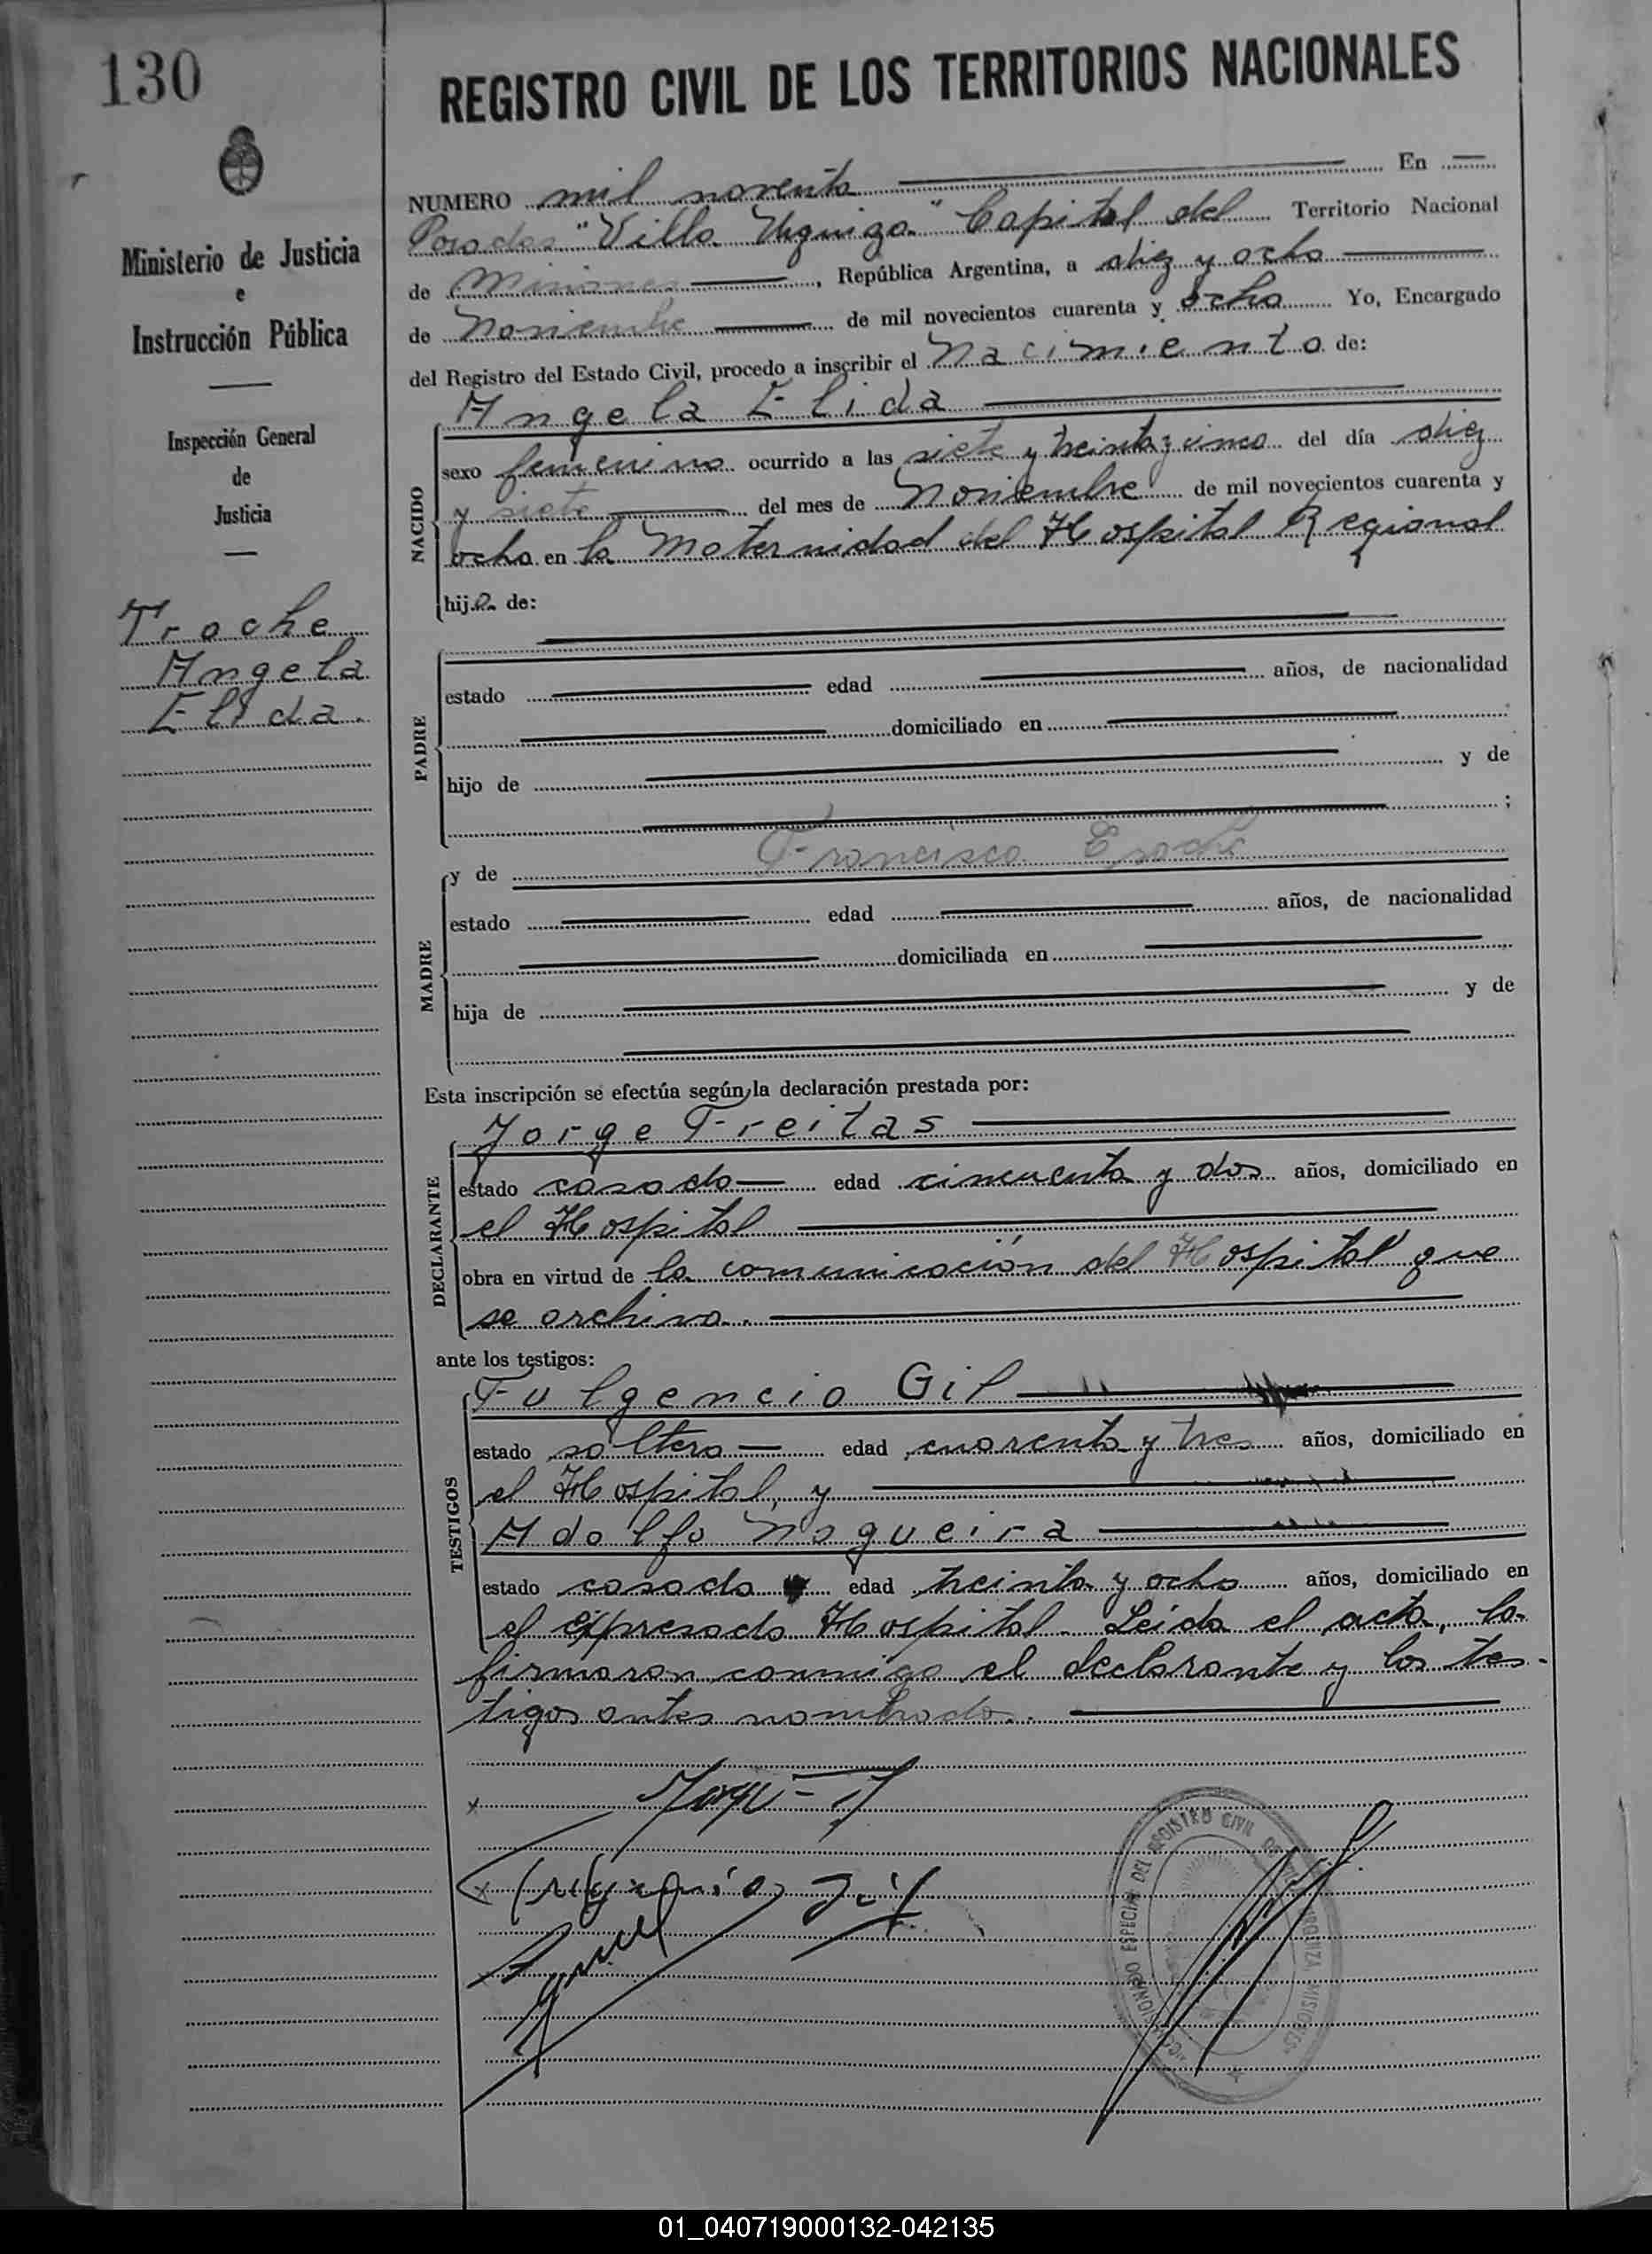 130
REGISTRO CIVIL DE LOS TERRITORIOS NACIONALES
Ministerio de Justicia
e
Instrucción Pública
Inspección General
de
Justicia
Troche
Angela
Elida.
NUMERO mil noventa En
Posadas "Villa Urquiza" Capital del Territorio Nacional
de Misiones, República Argentina, a diez y ocho
de Noviembre de mil novecientos cuarenta y ocho Yo, Encargado
del Registro del Estado Civil, procedo a inscribir el Nacimiento de:
NACIDO
Angela Elida
sexo femenino ocurrido a las siete y treinta y cinco del día diez
y siete del mes de Noviembre de mil novecientos cuarenta y
ocho en la Maternidad del Hospital Regional
hija de:
PADRE
estado edad años, de nacionalidad
domiciliado en
hijo de y de
;
MADRE
y de Francisca
estado edad años, de nacionalidad
domiciliada en
hija de y de
Esta inscripción se efectúa según la declaración prestada por:
DECLARANTE
Jorge Freitas
estado casado edad cincuenta y dos años, domiciliado en
el Hospital
obra en virtud de la comunicación del Hospital que
se archiva.
ante los testigos:
TESTIGOS
Fulgencio Gil
estado soltero edad cuarenta y tres años, domiciliado en
el Hospital, y
Adolfo Nogueira
estado casado edad treinta y ocho años, domiciliado en
el expresado Hospital. Leída el acta, la
firmaron conmigo el declarante y los tes-
tigos antes nombrados.
01_040719000132-042135